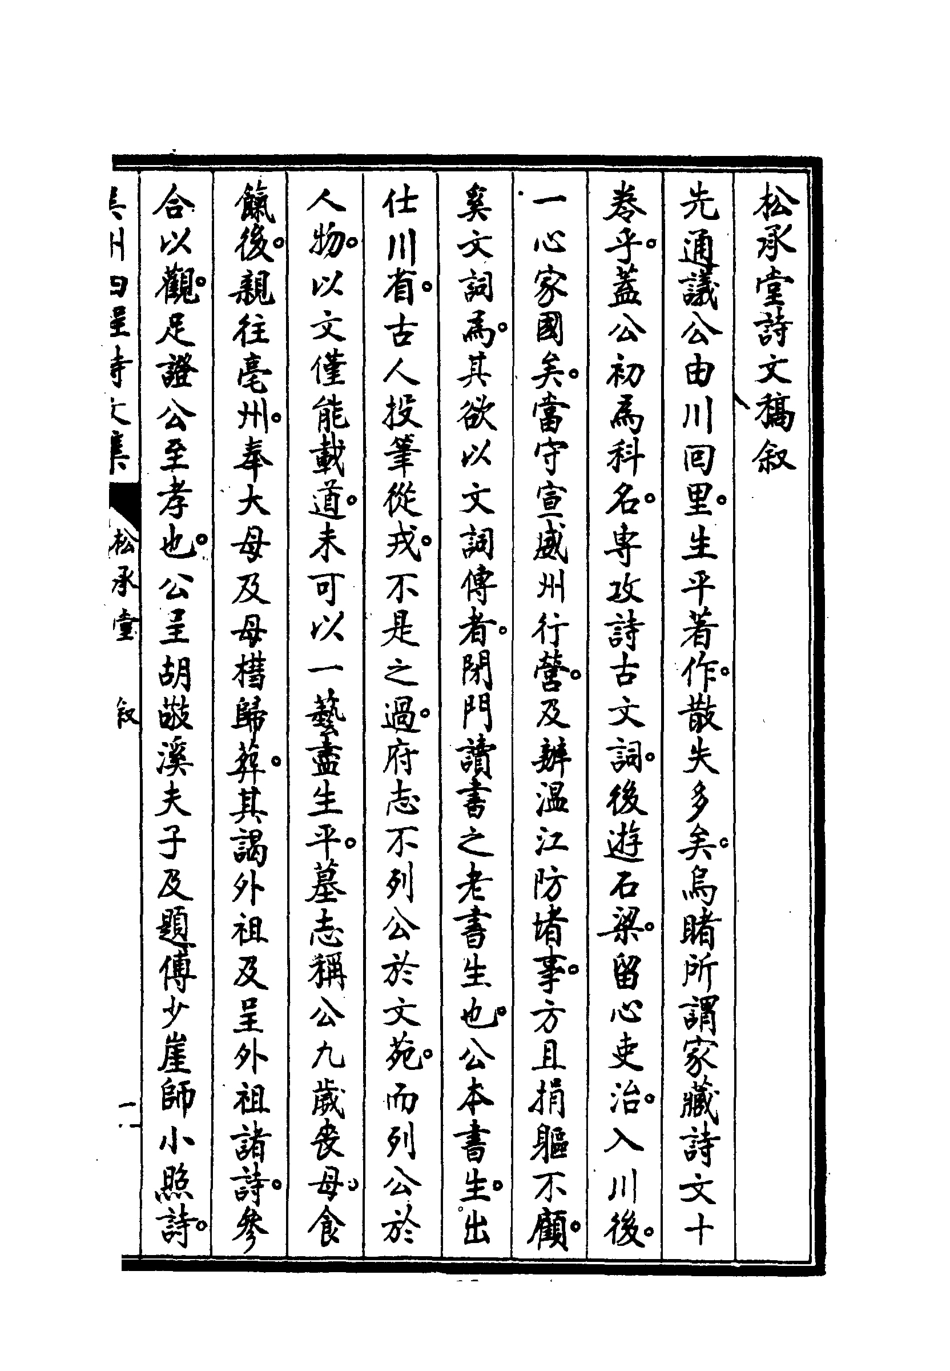 松承堂詩文稿叙
先通議公由川回里。生平著作。散失多矣。烏睹所謂家藏詩文十
卷乎。蓋公初爲科名。専攻詩古文詞。後遊石梁。留心吏治。入川後。
一心家國矣。當守宣威州行營。及辦温江防堵事。方且捐軀不顧。
奚文詞爲。其欲以文詞傳者。閉門讀書之老書生也。公本書生。出
仕川省。古人投筆從戎。不是之過。府志不列公於文苑。而列公於
人物。以文僅能載道。未可以一藝盡生平。墓志稱公九歲丧母。食
餼後。親往亳州。奉大母及母櫘歸葬。其謁外祖及呈外祖諸詩。參
合以觀。足證公至孝也。公呈胡敬溪夫子及題傅少崖師小照詩。
松承堂 叙 一